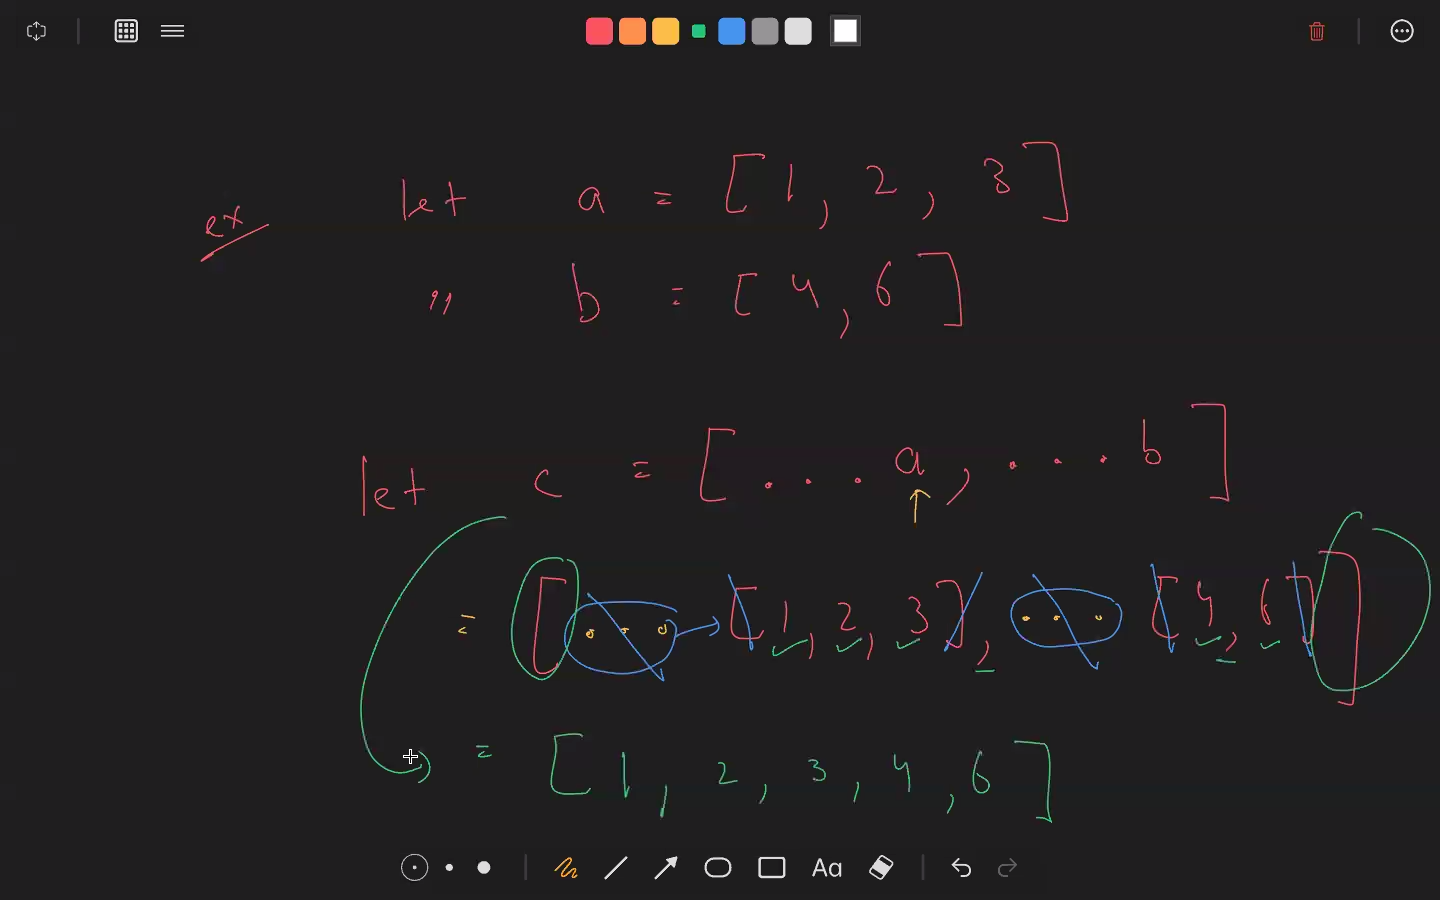 ex let a = [1, 2, 3]
" b = [4, 6]
let c = [...a, ...b]
= [... [1, 2, 3], ... [4, 6]]
= [1, 2, 3, 4, 6]
Aa